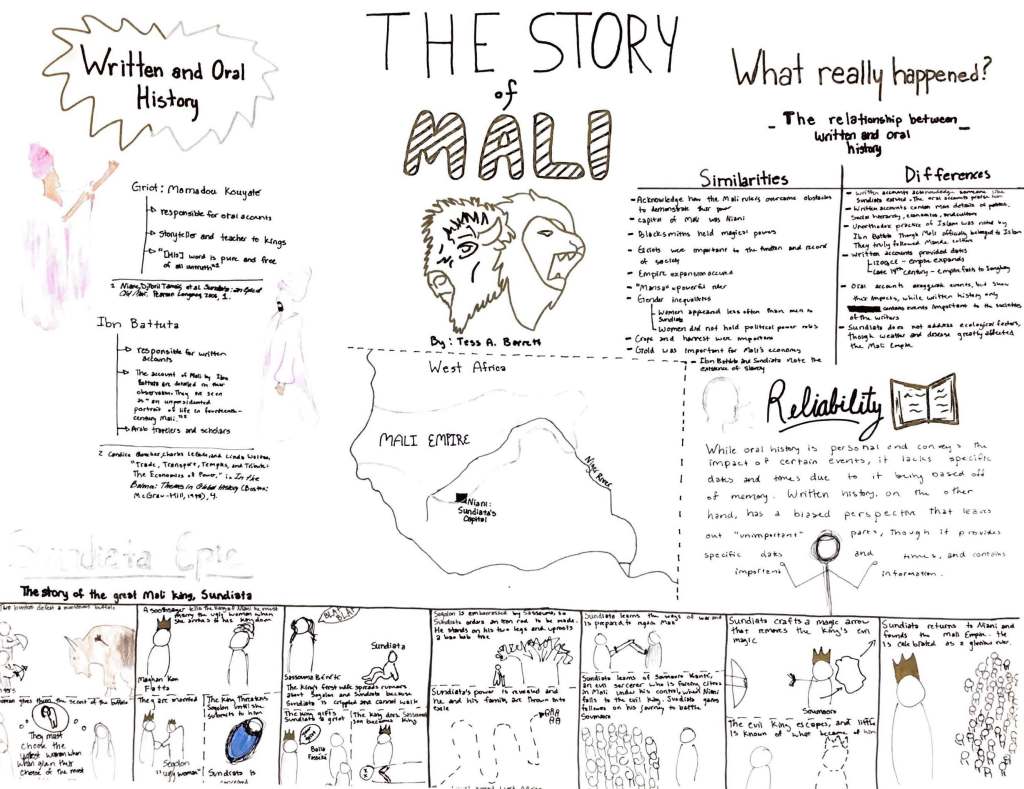 Written and Oral
History
Griot: Mamadou Kouyaté
responsible for oral accounts
storyteller and teacher to kings
"[His] word is pure and free
of all untruth"
Ibn Battuta
responsible for written
accounts
The account of Mali by Ibn
Battuta are detailed in
observation. They are seen
as "an
portrait of life in fourteenth-
century Mali."
Arab travelers and scholars
"Trade, Transport, Temples, and Tribute:
The Economics of Power," in In the
Balance: Themes in Global History (Boston:
McGraw-Hill, 1998), 4.
THE STORY
of
MALI
By: Tess A. Barrett
West Africa
MALI EMPIRE
Niger River
Niani:
Sundiata's
Capital
What really happened?
- The relationship between -
written and oral
history
Similarities
- Acknowledge how the Mali rulers overcame obstacles
to demonstrate their power
- Capital of Mali was Niani
- Blacksmiths held magical powers
were important to the tradition and record
of society
- Empire expansion occured
- "Mansa" = powerful ruler
- Gender inequalities
Women appeared less often than men in
Sundiata
Women did not hold political power roles
- Crops and harvest were important
- Gold was important for Mali's economy
- Ibn Battuta and Sundiata note the
existence of slavery
Differences
- Written accounts acknowledge someone like
Sundiata existed. The oral accounts
- Written accounts contain more details of politics,
Social hierarchy, economics, and culture
- Unorthodox practice of Islam was noted by
Ibn Battuta. Though Mali officially belonged to Islam
They truly followed Mande culture
- Written accounts provided dates
1200 CE - empire expands
- empire falls to Songhay
- Oral accounts exaggerate events, but show
their impacts, while written history only
contains events important to the societies
of the writers
- Sundiata does not address ecological factors,
though weather and disease greatly affected
the Mali Empire.
Reliability
While oral history is personal and conveys the
impact of certain events, it lacks specific
dates and times due to it being based off
of memory. Written history, on the other
hand, has a biased perspective that leaves
out "unimportant" parts, though it provides
specific dates and times, and contains
important information.
Sundiata Epic
The story of the great Mali king, Sundiata
defeat a buffalo
A soothsayer tells the King of Mali he must
marry the ugly woman when
she arrives to his kingdom
Maghan Kon
Fatta
BLA BLA
Sundiata
Sassouma Bérété
The King's first wife spreads rumors
about Sogolon and Sundiata because
Sundiata is crippled and cannot walk
Sogolon is embarrassed by Sassouma, so
Sundiata orders an iron rod to be made.
He stands on his two legs and uproots
a baobab tree
Sundiata learns the ways of war and
is prepared to
Sundiata crafts a magic arrow
that removes the king's evil
magic
Soumaoro
Sundiata returns to Niani and
founds the Mali Empire. He
is celebrated as a glorious ruler.
They must
choose the
ugliest woman when
given their
choice of the most
They are married
Sogolon
"ugly woman"
The King threatens
Sogolon until she
submits to him
Sundiata is
The King gifts
Sundiata a griot
Balla
Fasséké
The King dies, Sassouma's
son becomes King
Sundiata's power is revealed and
he and his family are thrown into
exile
Sundiata learns of Soumaoro Kanté,
an evil sorcerer who is forcing cities
in Mali under his control. When Niani
falls to the evil king, Sundiata gains
followers on his journey to battle
Soumaoro
The evil King escapes, and little
is known of what became of him